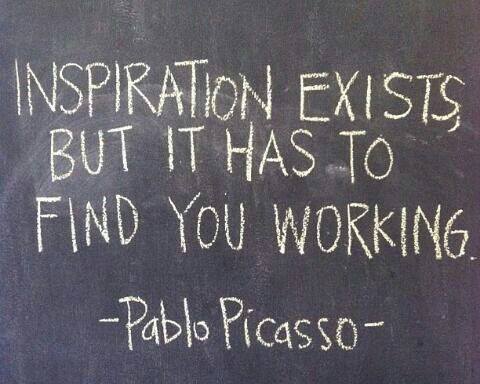 INSPIRATION EXISTS,
BUT IT HAS TO
FIND YOU WORKING.
-Pablo Picasso-